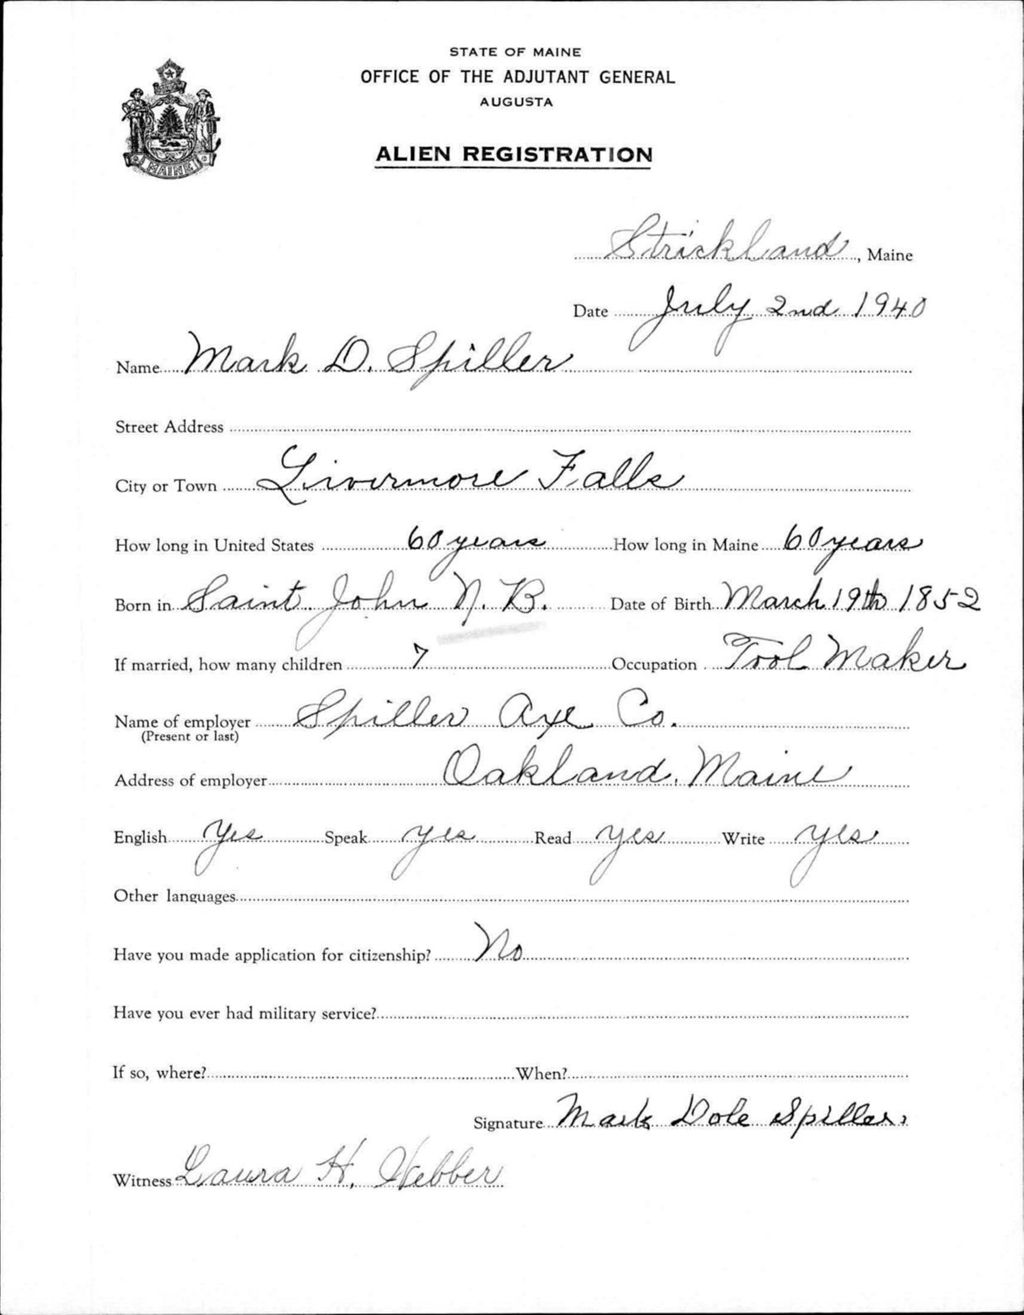 STATE OF MAINE
OFFICE OF THE ADJUTANT GENERAL
AUGUSTA
ALIEN REGISTRATION
MAINE
Strickland, Maine
Date July 2nd 1940
Name Mark D. Spiller
Street Address
City or Town Livermore Falls
How long in United States 60 years How long in Maine 60 years
Born in Saint John N. B. Date of Birth March 19th 1852
If married, how many children 7 Occupation Tool Maker
Name of employer Spiller Axe Co.
(Present or last)
Address of employer Oakland, Maine
English Yes Speak yes Read yes Write yes
Other languages
Have you made application for citizenship? No
Have you ever had military service?
If so, where? When?
Signature Mark Dole Spiller
Witness Laura H. Webber